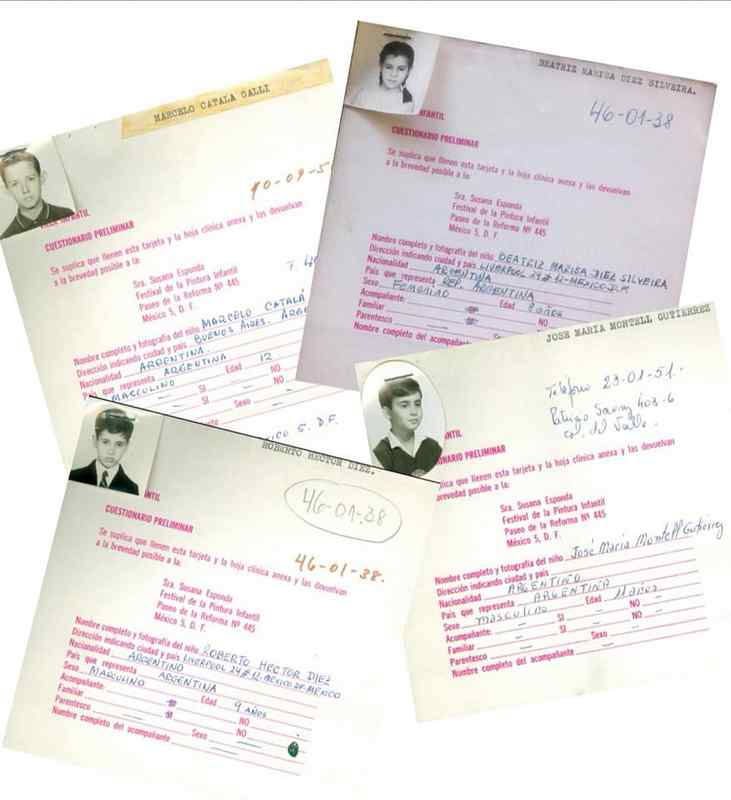 MARCELO CATALA GALLI
10-09-5
INFANTIL
CUESTIONARIO PRELIMINAR
Se suplica que llenen esta tarjeta y la hoja clínica anexa y las devuelvan
a la brevedad posible a la:
Sra. Susana Esponda
Festival de la Pintura Infantil
Paseo de la Reforma Nº 445
México 5, D. F.
Nombre completo y fotografía del niño MARCELO CATALÁ
Dirección indicando ciudad y país BUENOS AIRES.
Nacionalidad ARGENTINA.
País que representa ARGENTINA
Sexo MASCULINO Edad 12
Acompañante: SI NO
Familiar
Parentesco Sexo
D.F.
BEATRIZ MARISA DIEZ SILVEIRA.
46-01-38
NFANTIL
CUESTIONARIO PRELIMINAR
Se suplica que llenen esta tarjeta y la hoja clínica anexa y las devuelvan
a la brevedad posible a la:
Sra. Susana Esponda
Festival de la Pintura Infantil
Paseo de la Reforma Nº 445
México 5, D. F.
Nombre completo y fotografía del niño BEATRIZ MARISA DIEZ SILVEIRA
Dirección indicando ciudad y país LIVERPOOL
Nacionalidad ARGENTINA
País que representa REP. ARGENTINA
Sexo FEMENINO Edad 8 años
Acompañante: SI NO
Familiar
Parentesco Sexo
Nombre completo del acompañante
JOSE MARIA MONTELL GUTIERREZ
Teléfono 23-01-51.
403-6
Col. del Valle.
ANTIL
ONARIO PRELIMINAR
plica que llenen esta tarjeta y la hoja clínica anexa y las devuelvan
brevedad posible a la:
Sra. Susana Esponda
Festival de la Pintura Infantil
Paseo de la Reforma Nº 445
México 5, D. F.
Nombre completo y fotografía del niño José María Montell Gutiérrez
Dirección indicando ciudad y país
Nacionalidad ARGENTINO
País que representa ARGENTINA
Sexo masculino Edad 11 años
Acompañante: SI NO
Familiar SI NO
Parentesco Sexo
Nombre completo del acompañante
ROBERTO HECTOR DIEZ.
46-01-38
NTIL
CUESTIONARIO PRELIMINAR
46-01-38.
Se suplica que llenen esta tarjeta y la hoja clínica anexa y las devuelvan
a la brevedad posible a la:
Sra. Susana Esponda
Festival de la Pintura Infantil
Paseo de la Reforma Nº 445
México 5, D. F.
Nombre completo y fotografía del niño ROBERTO HECTOR DIEZ
Dirección indicando ciudad y país LIVERPOOL
Nacionalidad ARGENTINO
País que representa ARGENTINA
Sexo Edad 9 AÑOS
Acompañante: NO
Familiar NO
Parentesco Sexo
Nombre completo del acompañante